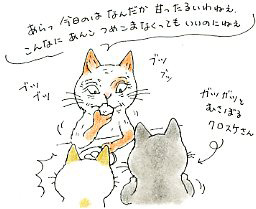 あらっ 今日のは なんだか 甘ったるいわねえ
こんなに あんこ つめこまなくっても いいのにねえ
ブツ
ブツ
ブツ
ブツ
ガツガツと
むさぼる
クロスケさん